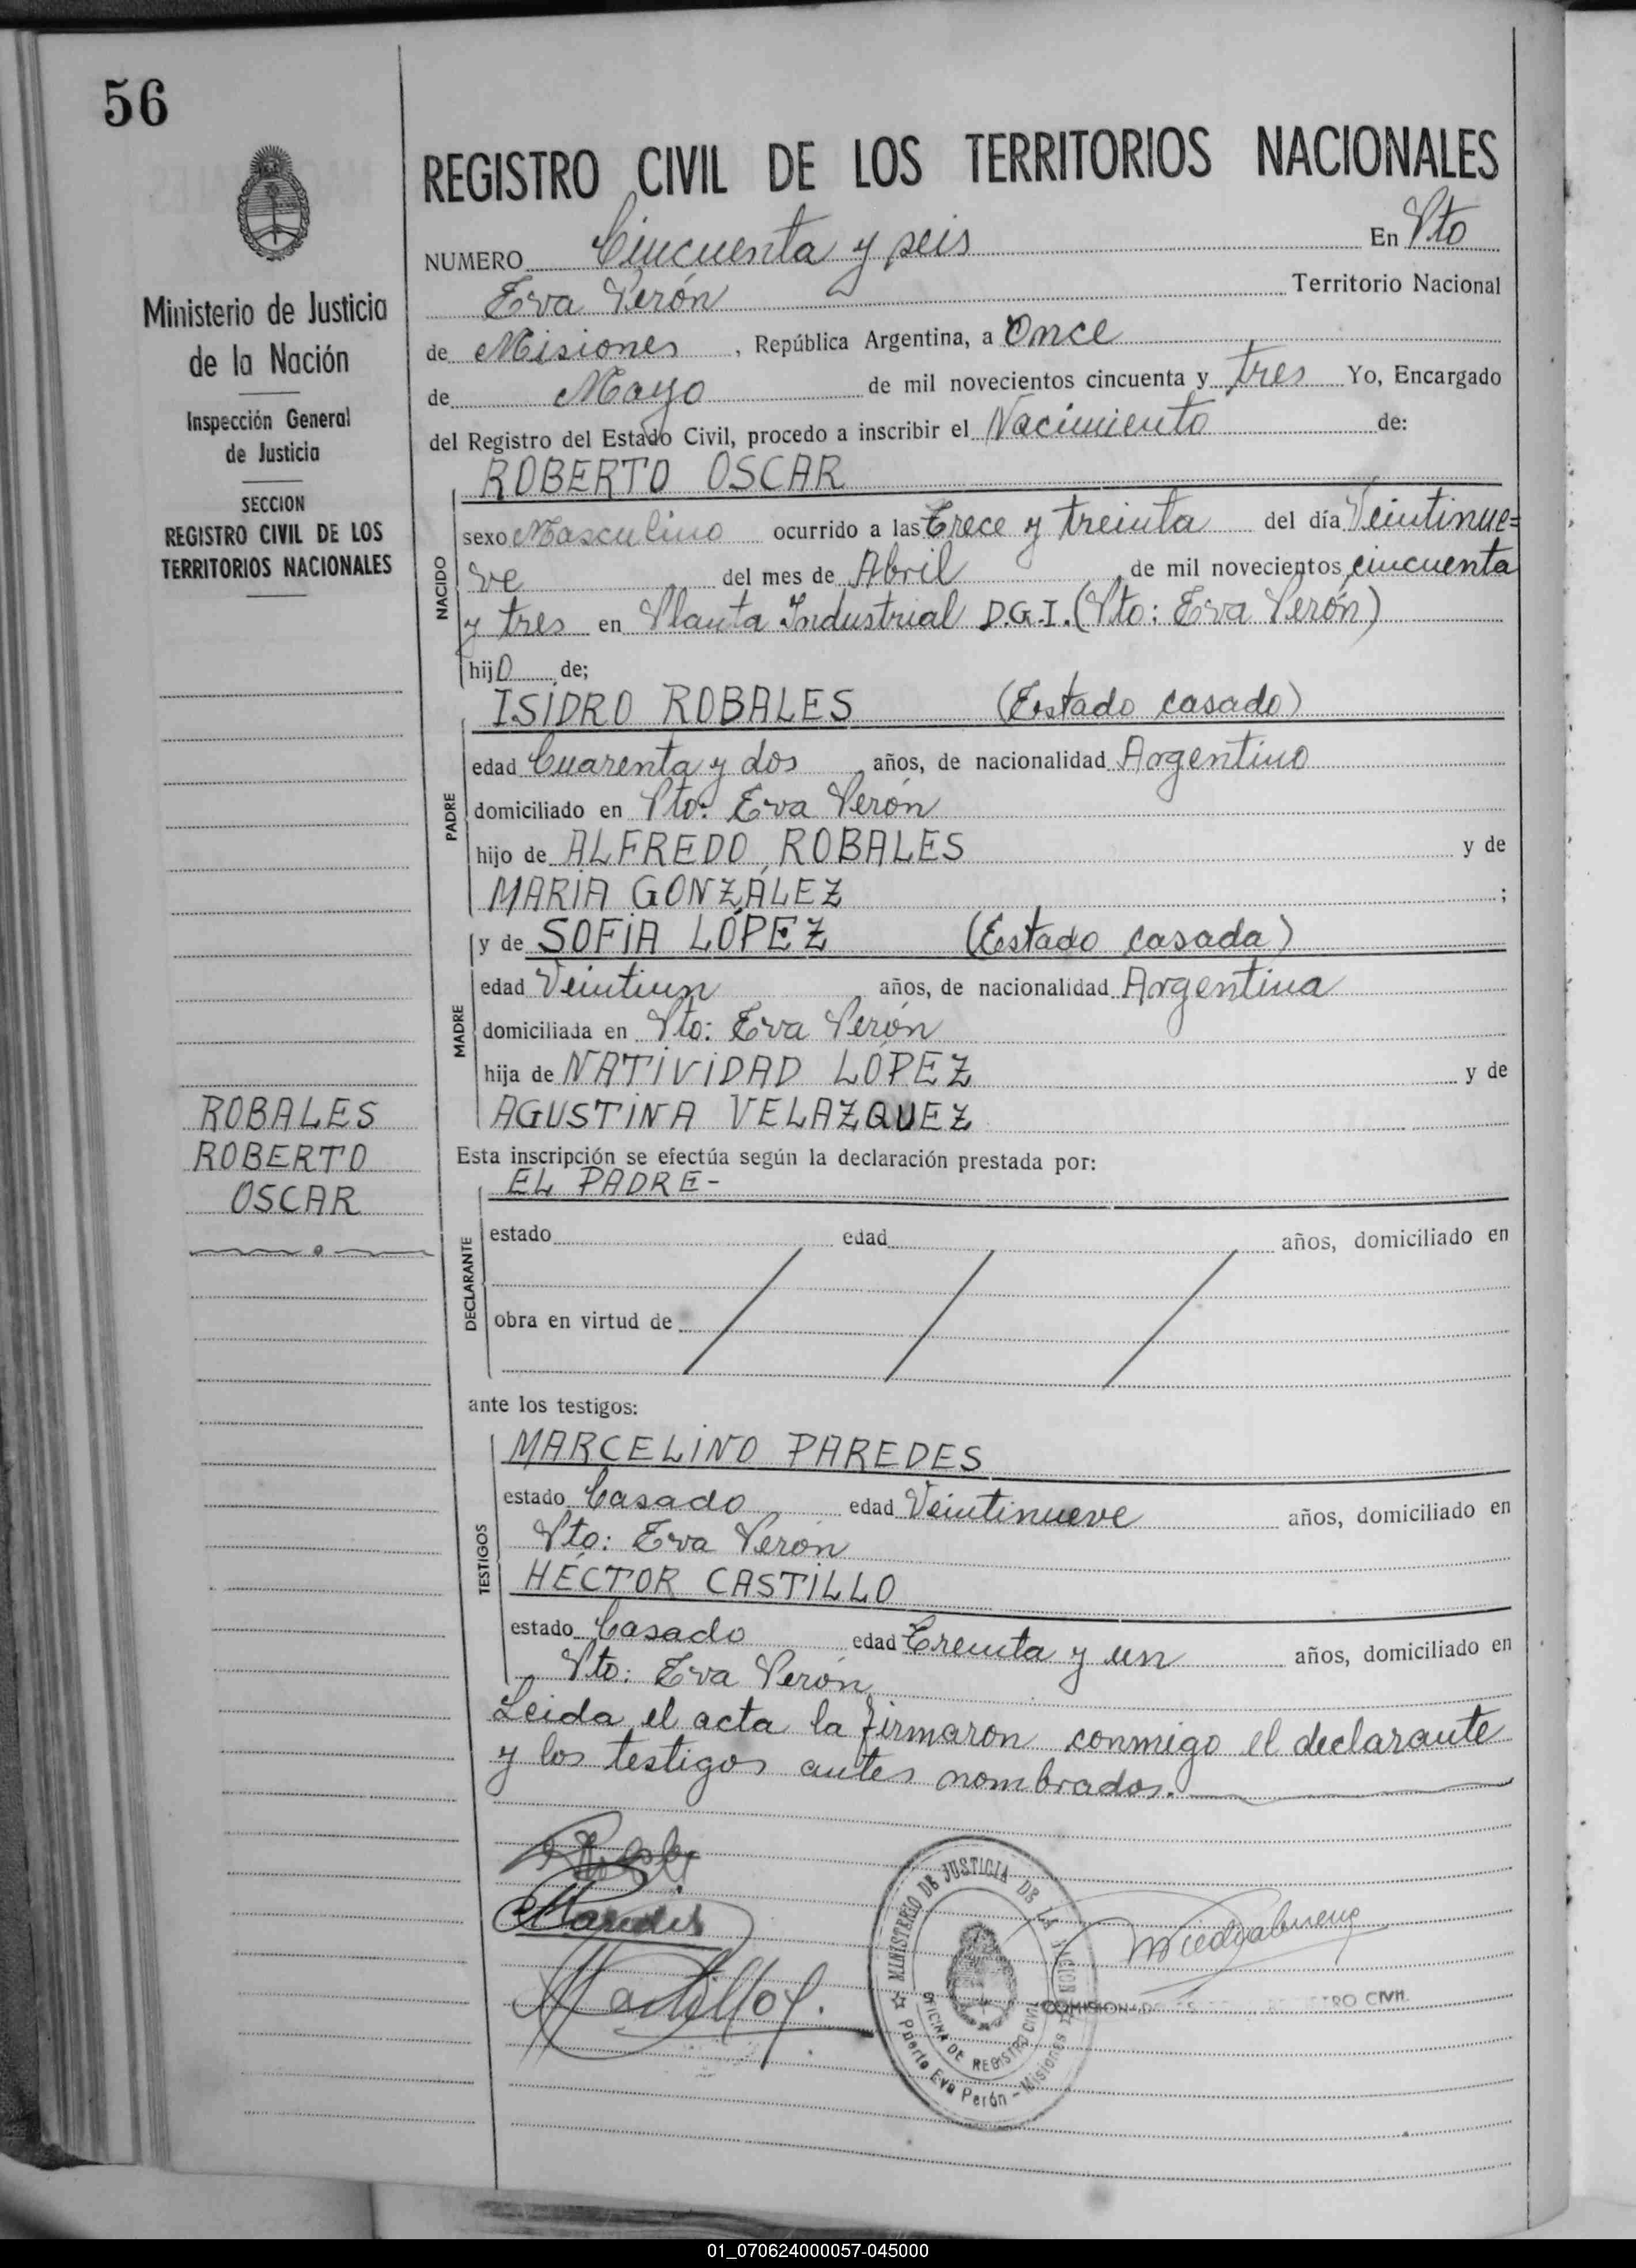 56
Ministerio de Justicia
de la Nación
Inspección General
de Justicia
SECCION
REGISTRO CIVIL DE LOS
TERRITORIOS NACIONALES
ROBALES
ROBERTO
OSCAR
REGISTRO CIVIL DE LOS TERRITORIOS NACIONALES
NUMERO Cincuenta y seis En Pto
Eva Perón Territorio Nacional
de Misiones, República Argentina, a Once
de Mayo de mil novecientos cincuenta y tres Yo, Encargado
del Registro del Estado Civil, procedo a inscribir el Nacimiento de:
ROBERTO OSCAR
NACIDO
sexo Masculino ocurrido a las Trece y treinta del día Veintinue=
ve del mes de Abril de mil novecientos cincuenta
y tres en Planta Industrial D.G.I. (Pto: Eva Perón)
hijo de;
ISIDRO ROBALES (Estado casado)
PADRE
edad Cuarenta y dos años, de nacionalidad Argentino
domiciliado en Pto: Eva Perón
hijo de ALFREDO ROBALES y de
MARIA GONZÁLEZ ;
y de SOFIA LÓPEZ (Estado casada)
MADRE
edad Veintiun años, de nacionalidad Argentina
domiciliada en Pto: Eva Perón
hija de NATIVIDAD LÓPEZ y de
AGUSTINA VELAZQUEZ
Esta inscripción se efectúa según la declaración prestada por:
EL PADRE-
DECLARANTE
estado edad años, domiciliado en
obra en virtud de
ante los testigos:
MARCELINO PAREDES
TESTIGOS
estado Casado edad Veintinueve años, domiciliado en
Pto: Eva Perón
HÉCTOR CASTILLO
estado Casado edad Treinta y un años, domiciliado en
Pto: Eva Perón
Leida el acta la firmaron conmigo el declarante
y los testigos antes nombrados.
MParedes
HCastillo
MINISTERIO DE JUSTICIA DE LA NACION
OFICINA DE REGISTRO CIVIL
Puerto Eva Perón - Misiones
COMISIONADO REGISTRO CIVIL
01_070624000057-045000